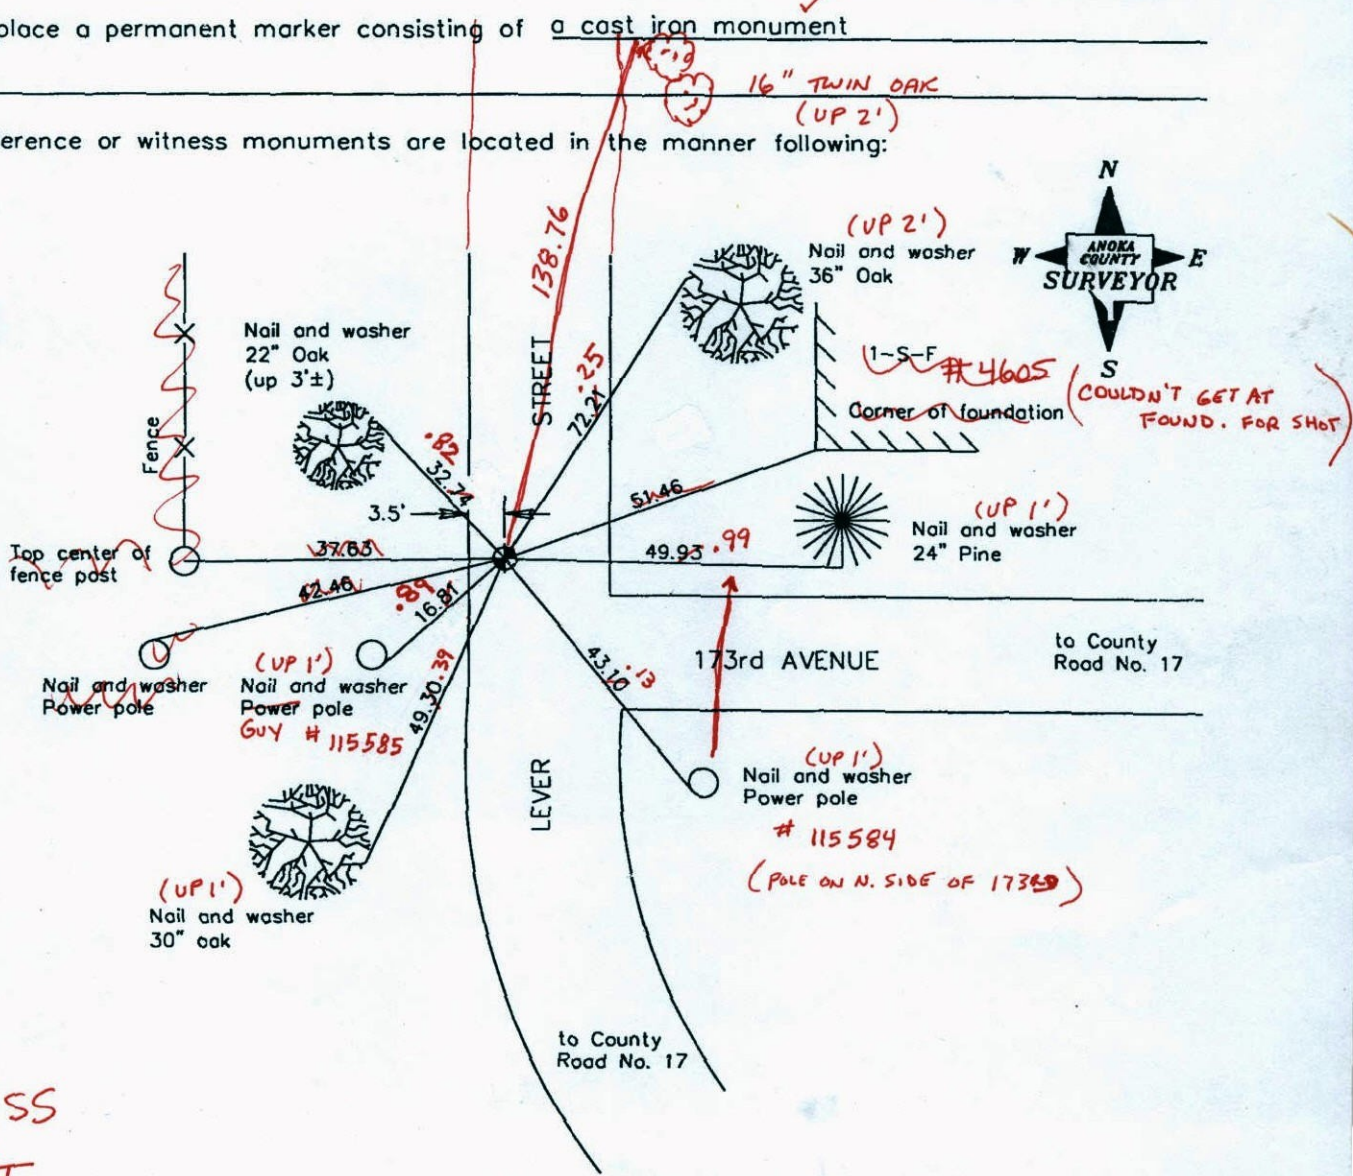 place a permanent marker consisting of a cast iron monument
16" TWIN OAK
(UP 2')
erence or witness monuments are located in the manner following:
N
W ANOKA COUNTY E
SURVEYOR
S
138.76
(UP 2')
Nail and washer
36" Oak
Nail and washer
22" Oak
(up 3'±)
STREET
72.21 .25
1-S-F #4605
Corner of foundation
(COULDN'T GET AT
FOUND. FOR SHOT)
Fence
.82
32.74
3.5'
51.46
(UP 1')
Nail and washer
24" Pine
Top center of
fence post
37.63
49.93 .99
42.46
.89
16.81
(UP 1')
Nail and washer
Power pole
Nail and washer
Power pole
GUY # 115585
49.30 .39
43.10 .13
173rd AVENUE
to County
Road No. 17
LEVER
(UP 1')
Nail and washer
Power pole
# 115584
(POLE ON N. SIDE OF 173RD)
(UP 1')
Nail and washer
30" oak
to County
Road No. 17
SS